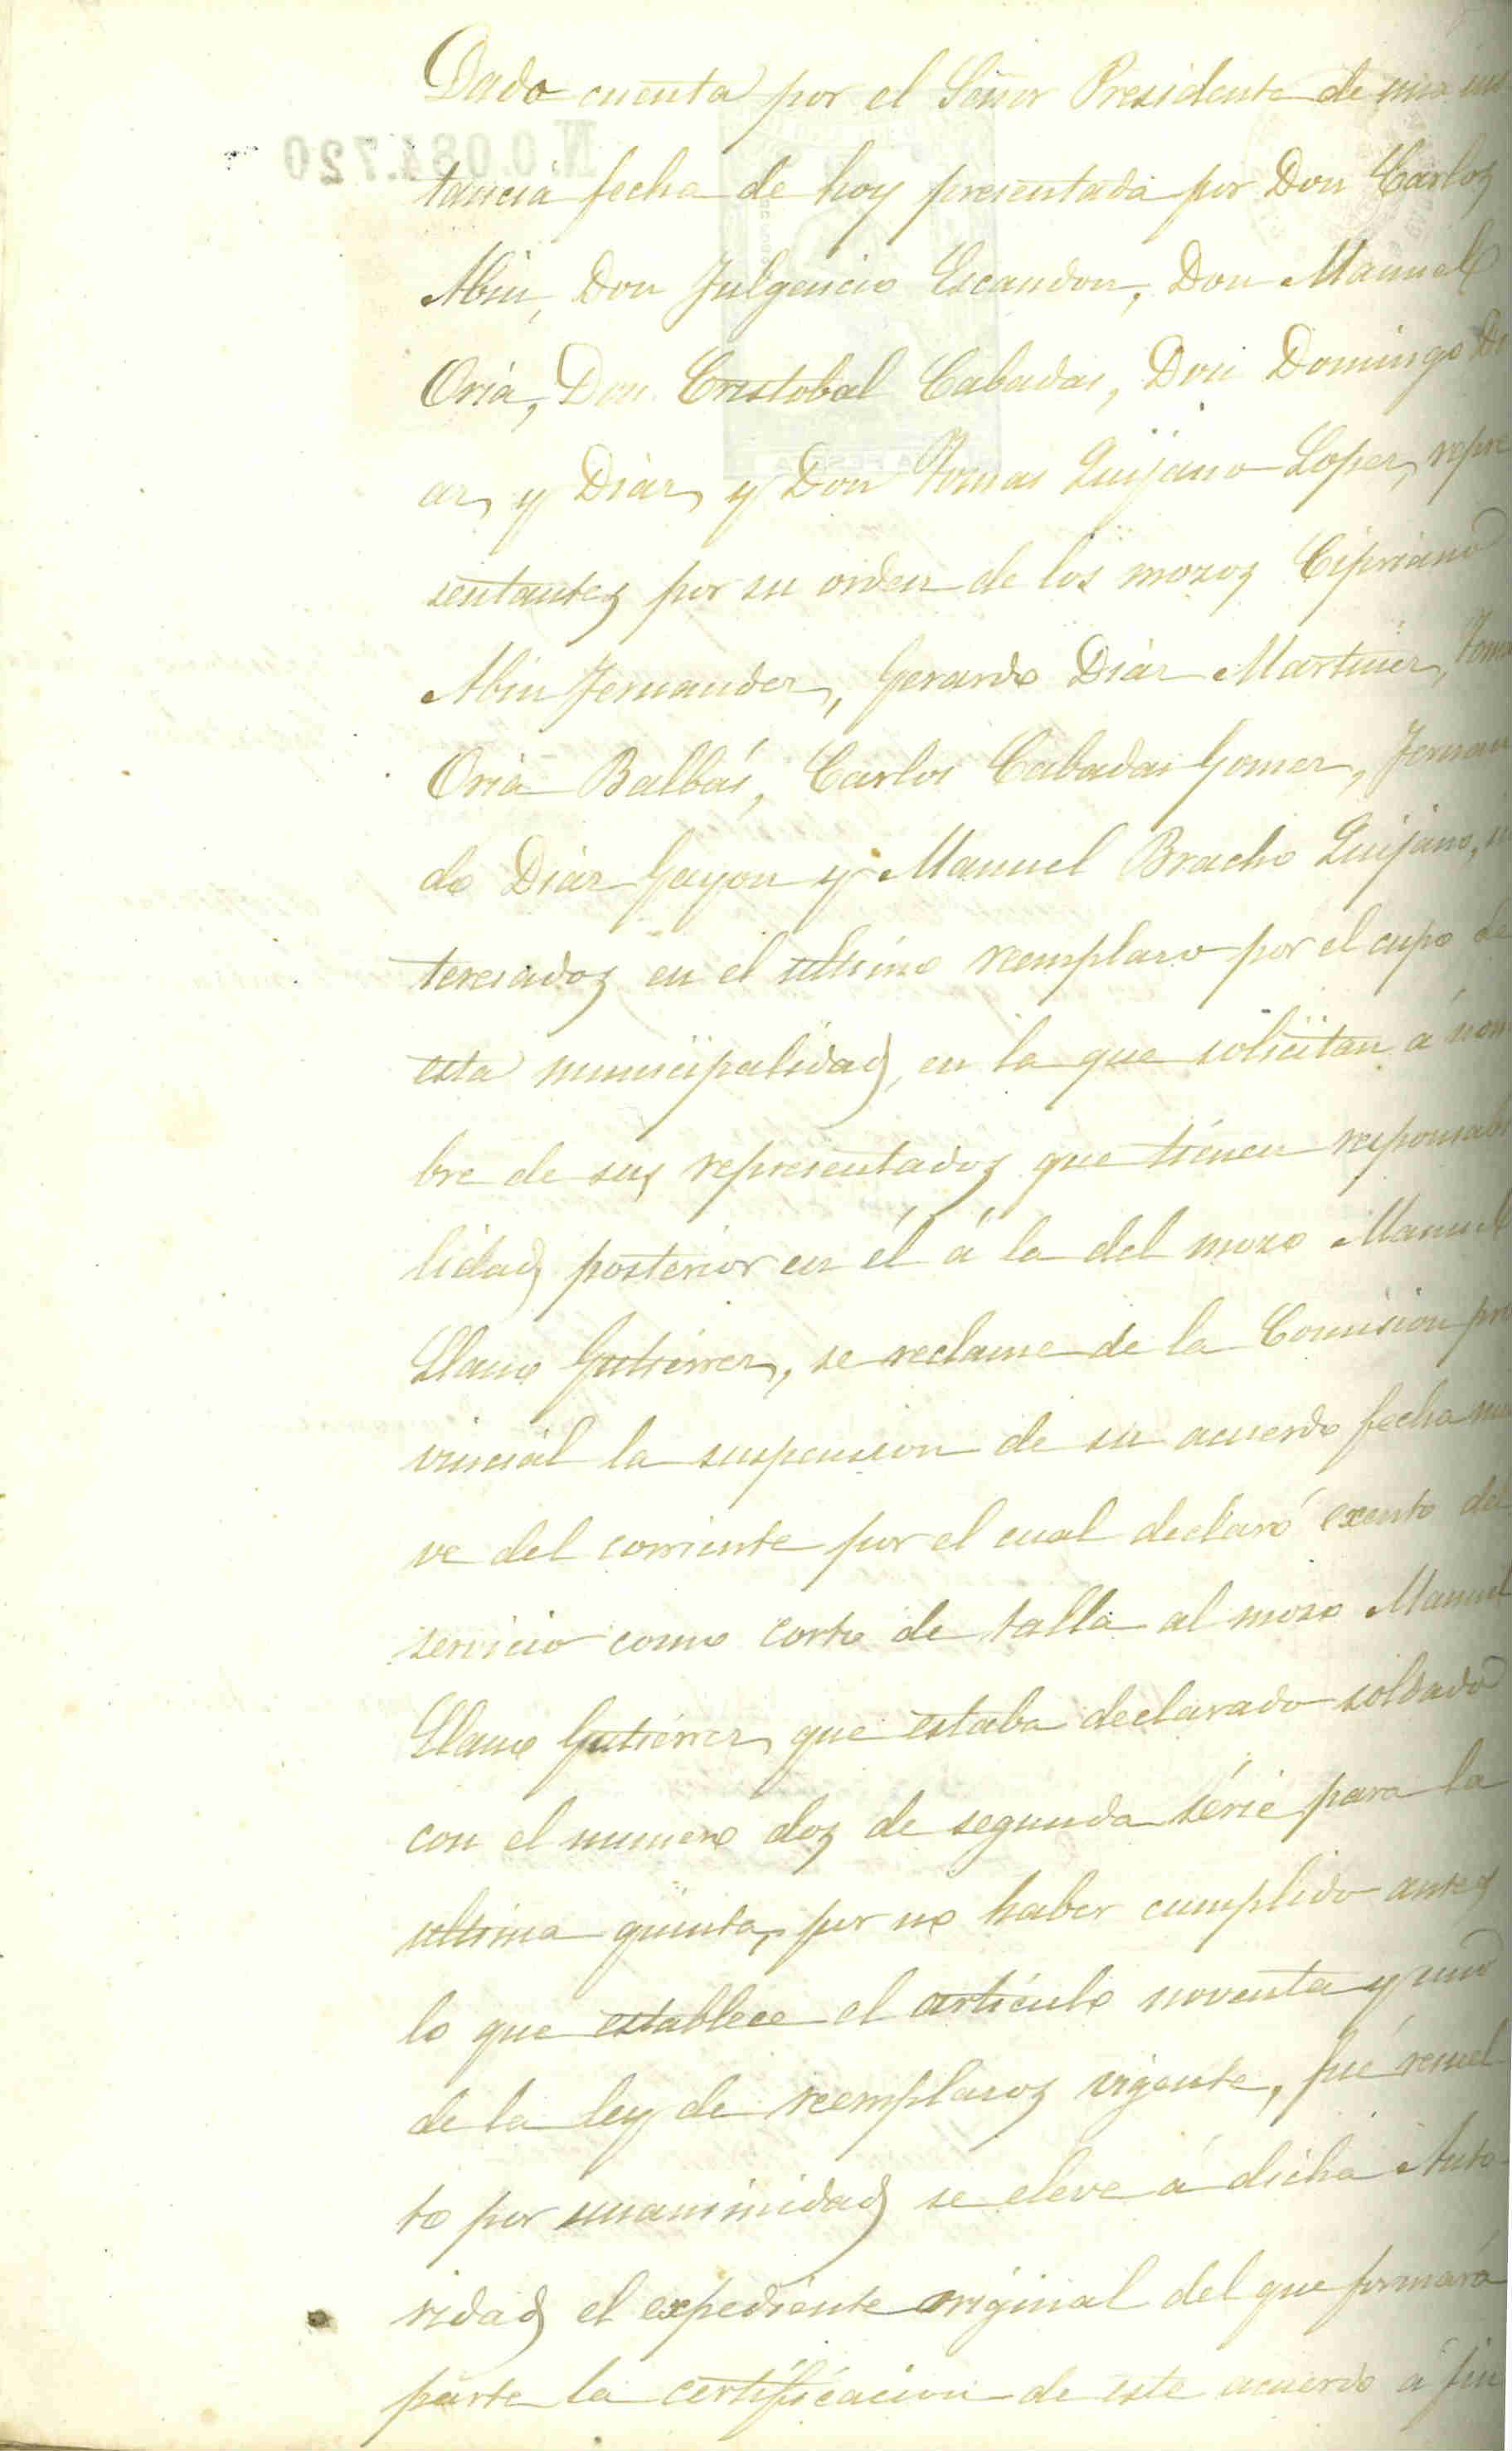 Dada cuenta por el Señor Presidente de una ins
tancia fecha de hoy presentada por Don Carlos
Abin, Don Fulgencio Escandon, Don Manuel
Oria, Don Cristobal Cabadas, Don Domingo Di
az y Diaz y Don Tomas Quijano Lopez, repre
sentantes por su orden de los mozos Cipriano
Abin Fernandez, Gerardo Diaz Martinez, Tomas
Oria Balbás, Carlos Cabadas Gomez, Fernan
do Diaz Gayon y Manuel Bracho Quijano, in
teresados en el ultimo reemplazo por el cupo de
esta municipalidad, en la que solicitan á nom
bre de sus representados que tienen responsabi
lidad posterior en él á la del mozo Manuel
Llano Gutiérrez, se reclame de la Comision pro
vincial la suspension de su acuerdo fecha nue
ve del corriente por el cual declaró exento del
servicio como corto de talla al mozo Manuel
Llano Gutiérrez que estaba declarado soldado
con el numero dos de segunda série para la
ultima quinta, por no haber cumplido antes
lo que establece el artículo noventa y uno
de la ley de reemplazos vigente, fué resuel
to por unanimidad se eleve á dicha Auto
ridad el expediente original del que formará
parte la certificacion de este acuerdo á fin
N.0.084.720